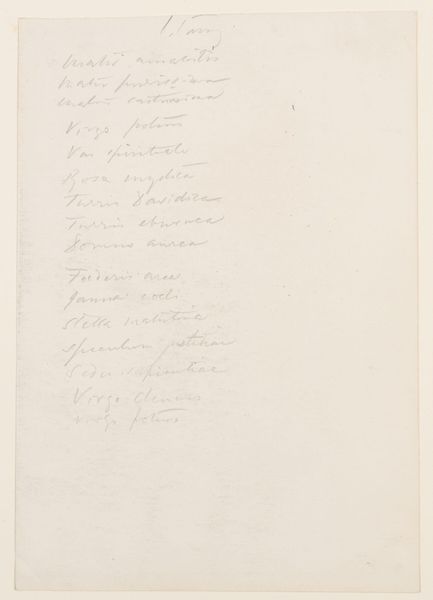 Mater amabilis
Mater purissima
Mater castissima
Virgo potens
Vas spirituale
Rosa mystica
Turris Davidica
Turris eburnea
Domus aurea
Foederis arca
Janua coeli
Stella matutina
Speculum justitiae
Sedes sapientiae
Virgo clemens
Virgo potens